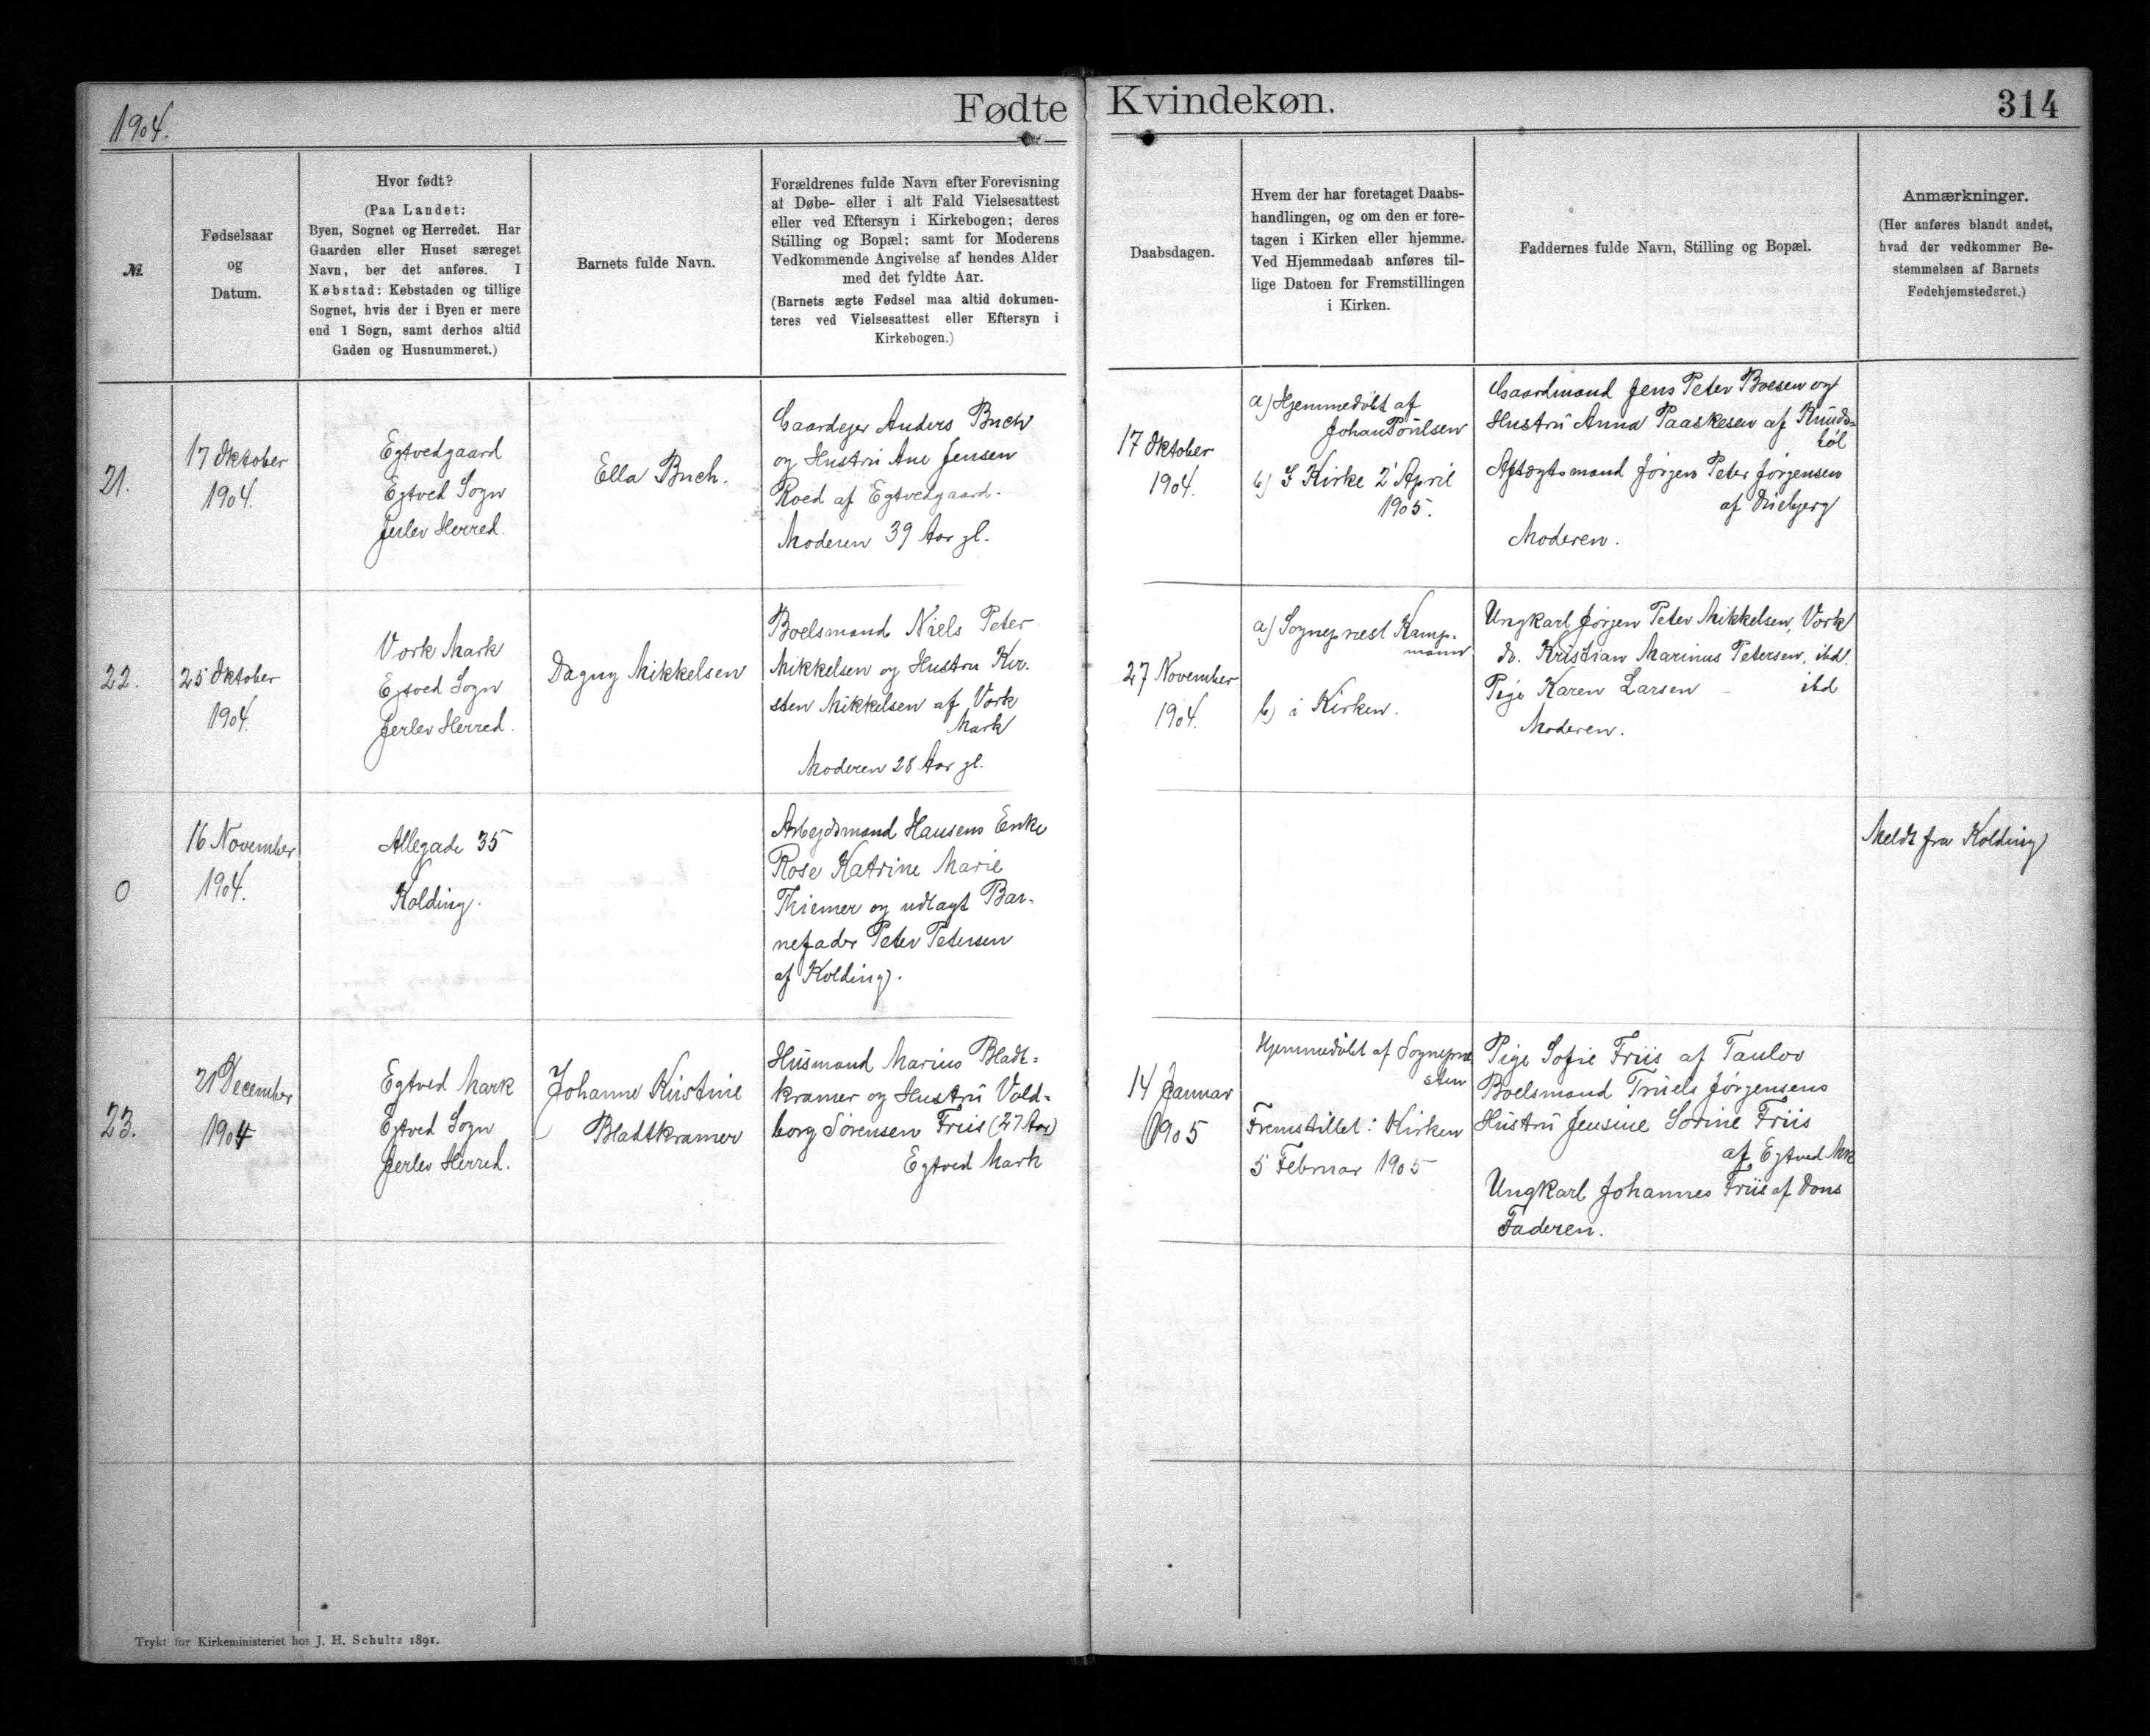 1904.
Fødte Kvindekøn.
314
№.
Fødselsaar
og
Datum.
Hvor født?
(Paa Landet:
Byen, Sognet og Herredet. Har
Gaarden eller Huset særeget
Navn, bør det anføres. I
Købstad: Købstaden og tillige
Sognet, hvis der i Byen er mere
end 1 Sogn, samt derhos altid
Gaden og Husnummeret.)
Barnets fulde Navn.
Forældrenes fulde Navn efter Forevisning
af Døbe- eller i alt Fald Vielsesattest
eller ved Eftersyn i Kirkebogen; deres
Stilling og Bopæl; samt for Moderens
Vedkommende Angivelse af hendes Alder
med det fyldte Aar.
(Barnets ægte Fødsel maa altid dokumen-
teres ved Vielsesattest eller Eftersyn i
Kirkebogen.)
Daabsdagen.
Hvem der har foretaget Daabs-
handlingen, og om den er fore-
tagen i Kirken eller hjemme.
Ved Hjemmedaab anføres til-
lige Datoen for Fremstillingen
i Kirken.
Faddernes fulde Navn, Stilling og Bopæl.
Anmærkninger.
(Her anføres blandt andet,
hvad der vedkommer Be-
stemmelsen af Barnets
Fødehjemstedsret.)
21.
17 Oktober
1904.
Egtvedgaard
Egtved Sogn
Jerlev Herred.
Ella Buch.
Gaardejer Anders Buch
og Hustru Ane Jensen
Roed af Egtvedgaard.
Moderen 39 Aar gl.
17 Oktober
1904.
a) Hjemmedøbt af
Johan Poulsen
b) I Kirke 2' April
1905.
Gaardmand Jens Peter Boesen og
Hustru Anna Paaskesen af Knuds-
bøl
Aftægtsmand Jørgen Peter Jørgensen
af
Moderen.
22.
25 Oktober
1904.
Vork Mark
Egtved Sogn
Jerlev Herred.
Dagny Mikkelsen
Boelsmand Niels Peter
Mikkelsen og Hustru Kir-
sten Mikkelsen af Vork
Mark
Moderen 28 Aar gl.
27 November
1904.
a) Sognepræst Kamp-
mann
b) i Kirken.
Ungkarl Jørgen Peter Mikkelsen, Vork
do. Kristian Marinus Petersen, ibd.
Pige Karen Larsen - ibd
Moderen.
0
16 November
1904.
Allegade 35
Kolding.
Arbejdsmand Hansens Enke
Rose Katrine Marie
Thiemer og udlagt Bar-
nefader Peter Petersen
af Kolding.
Meldt fra Kolding
23.
21 December
1904
Egtved Mark
Egtved Sogn
Jerlev Herred.
Johanne Kirstine
Bladtkramer
Husmand Marius Bladt-
kramer og Hustru Vald-
borg Sørensen Friis (27 Aar)
Egtved Mark
14 Januar
1905
Hjemmedøbt af Sognepræ
sten
Fremstillet i Kirken
5 Februar 1905
Pige Sofie Friis af Taulov
Boelsmand Truels Jørgensens
Hustru Jensine Sørine Friis
af Egtved Mk
Ungkarl Johannes Friis af Dons
Faderen.
Trykt for Kirkeministeriet hos J. H. Schultz 1891.